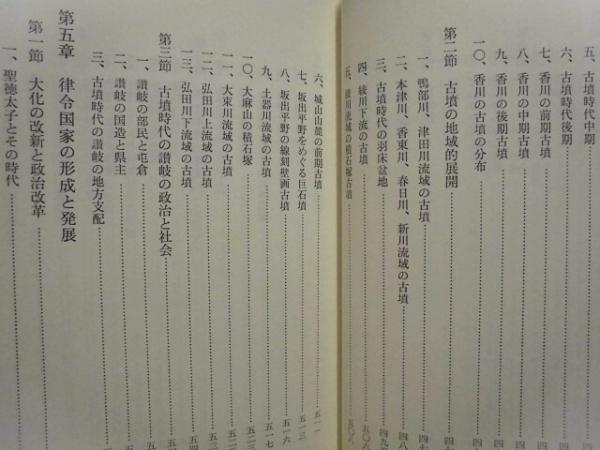 五、古墳時代中期
六、古墳時代後期
七、香川の前期古墳
八、香川の中期古墳
九、香川の後期古墳
一〇、香川の古墳の分布
第二節 古墳の地域的展開
一、鴨部川、津田川流域の古墳
二、本津川、香東川、春日川、新川流域の古墳
三、古墳時代の羽床盆地
四、綾川下流の古墳
五、綾川流域の積石塚古墳
六、城山山麓の前期古墳 五一一
七、坂出平野をめぐる巨石墳 五一三
八、坂出平野の線刻壁画古墳 五一六
九、土器川流域の古墳 五一七
一〇、大麻山の積石塚
一一、大束川流域の古墳
一二、弘田川上流域の古墳
一三、弘田川下流域の古墳
第三節 古墳時代の讃岐の政治と社会
一、讃岐の部民と屯倉
二、讃岐の国造と県主
三、古墳時代の讃岐の地方支配
第五章 律令国家の形成と発展
第一節 大化の改新と政治改革
一、聖徳太子とその時代